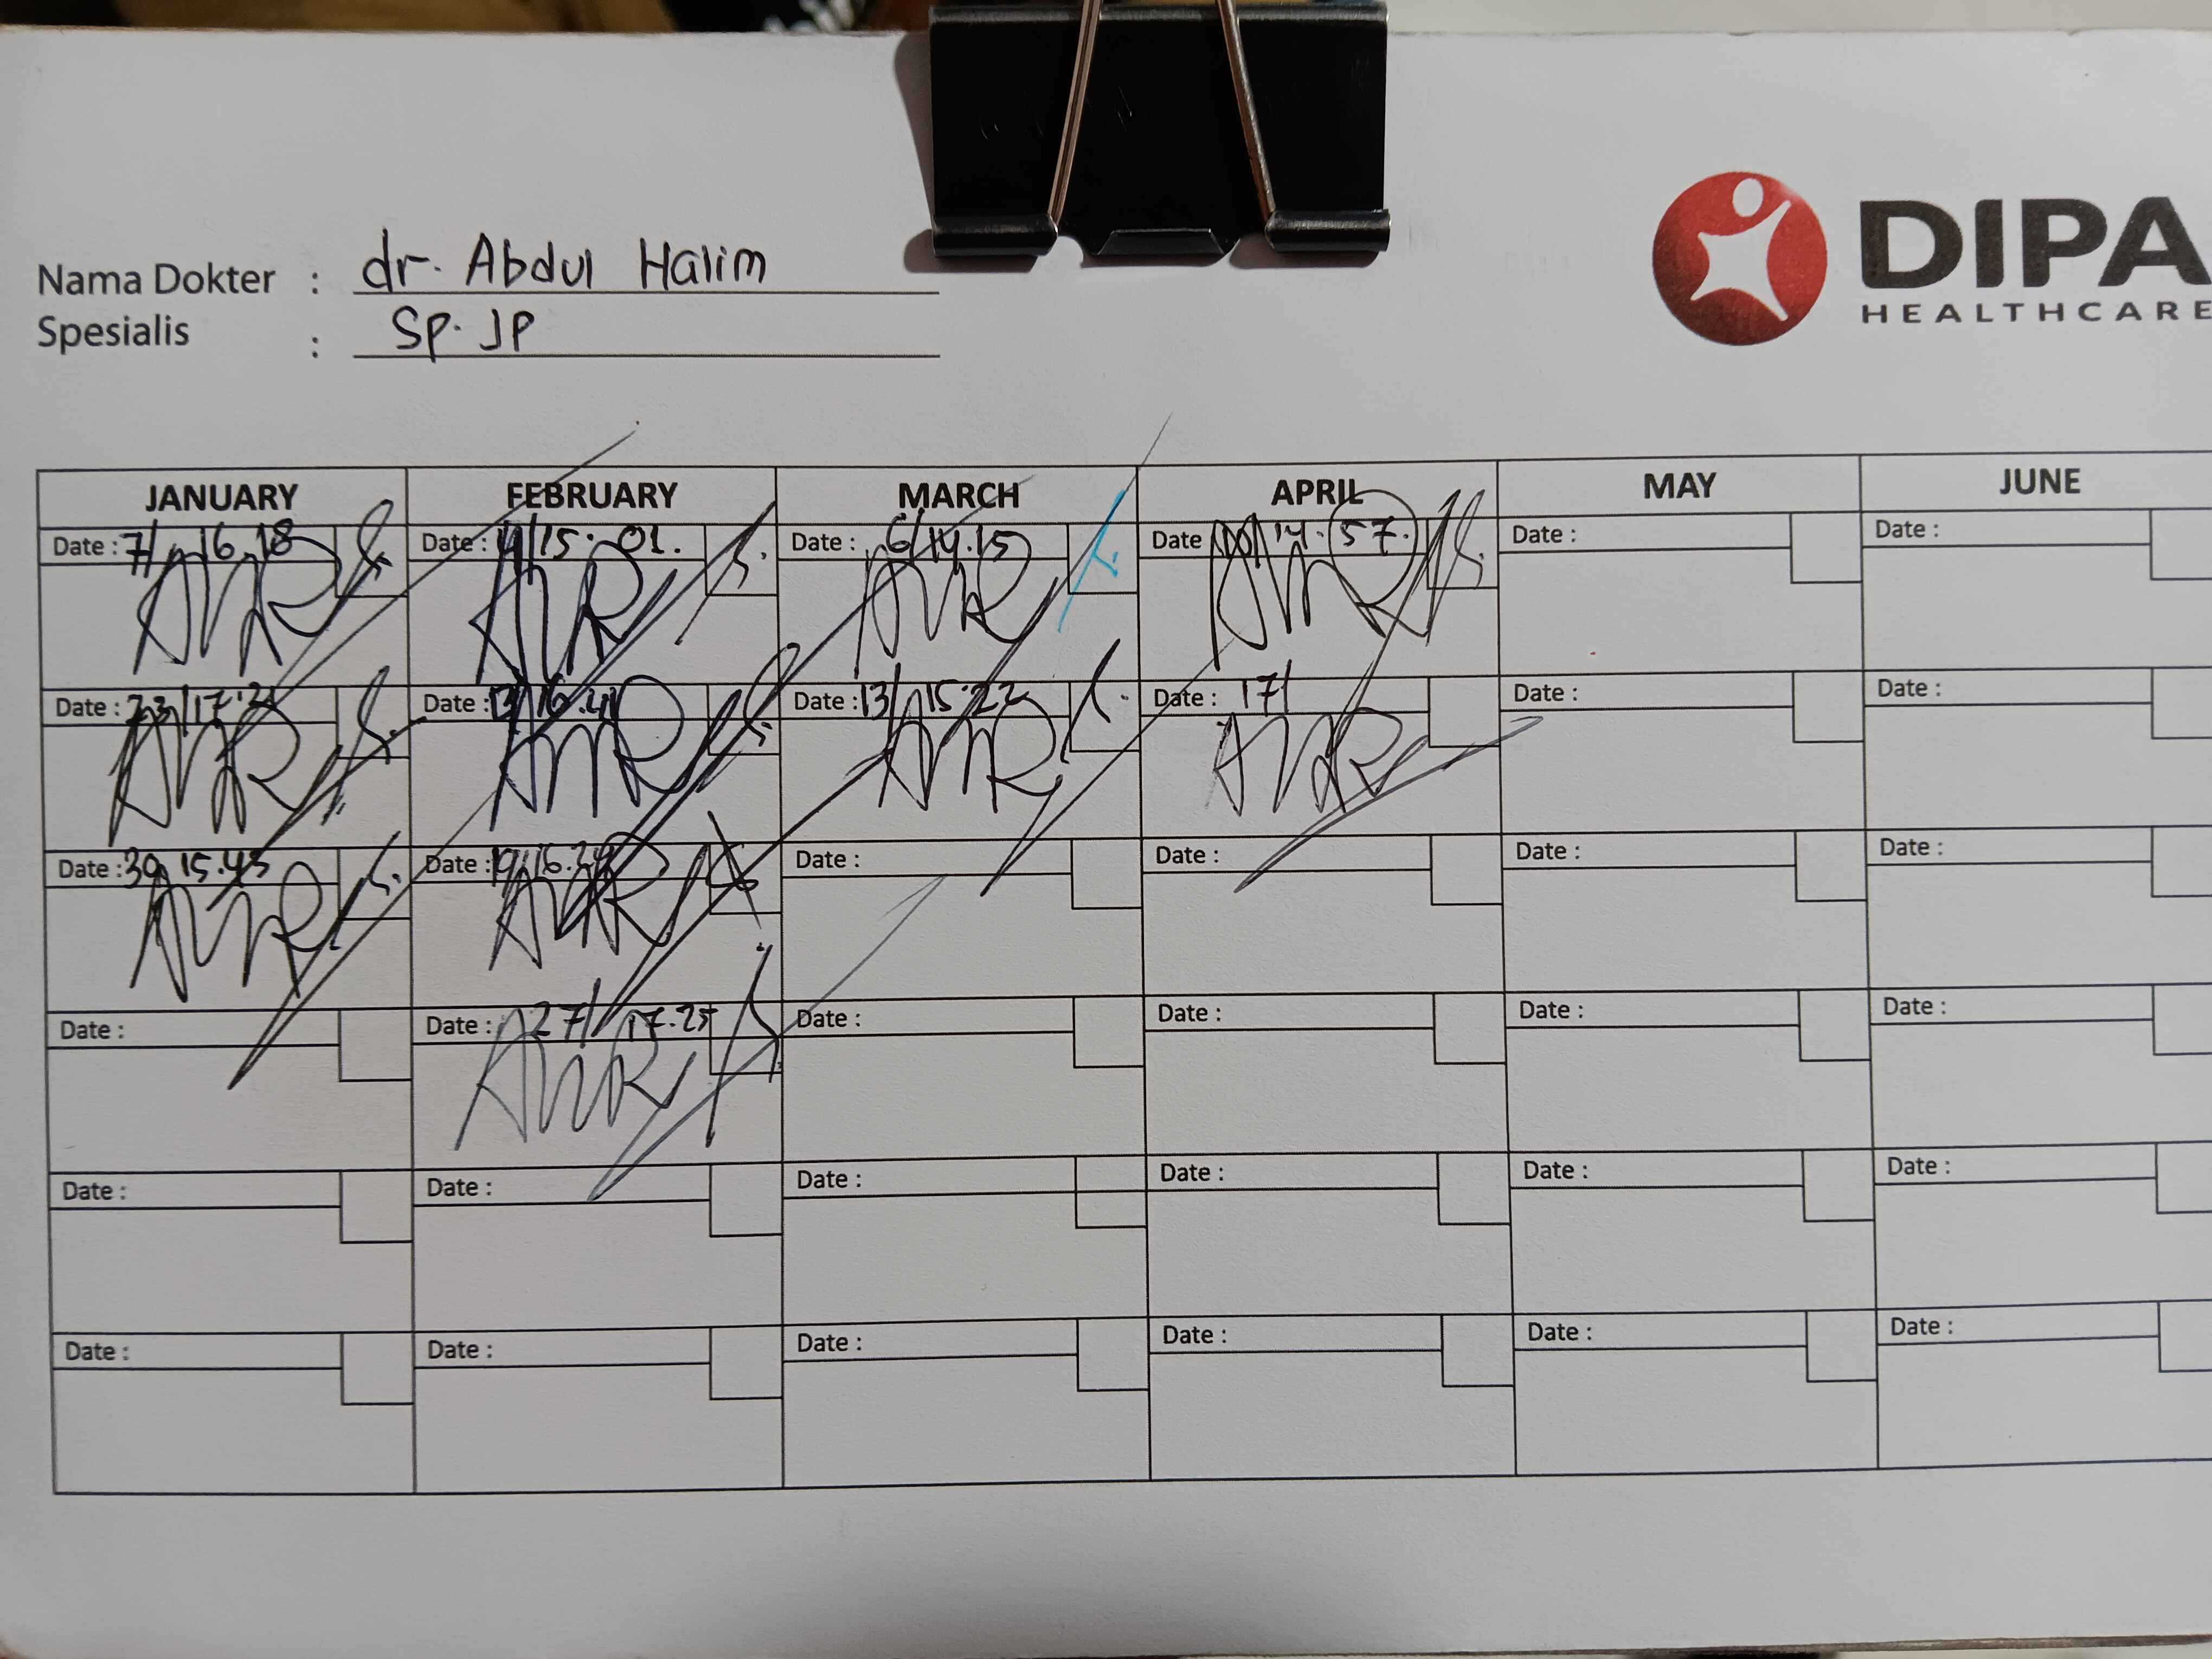 Nama Dokter : dr. Abdul Halim
Spesialis : Sp. JP
DIPA
HEALTHCARE
JANUARY FEBRUARY MARCH APRIL MAY JUNE
Date : 7/ 16.18 Date : 15.01. Date : 6/14.15 Date 14.57. Date : Date :
Date : 23/17.21 Date : Date : 13/ 15.22 Date : 17/ Date : Date :
Date : 30 15.45 Date : 19/16.34 Date : Date : Date : Date :
Date : Date : 27/ 17.25 Date : Date : Date : Date :
Date : Date : Date : Date : Date : Date :
Date : Date : Date : Date : Date : Date :